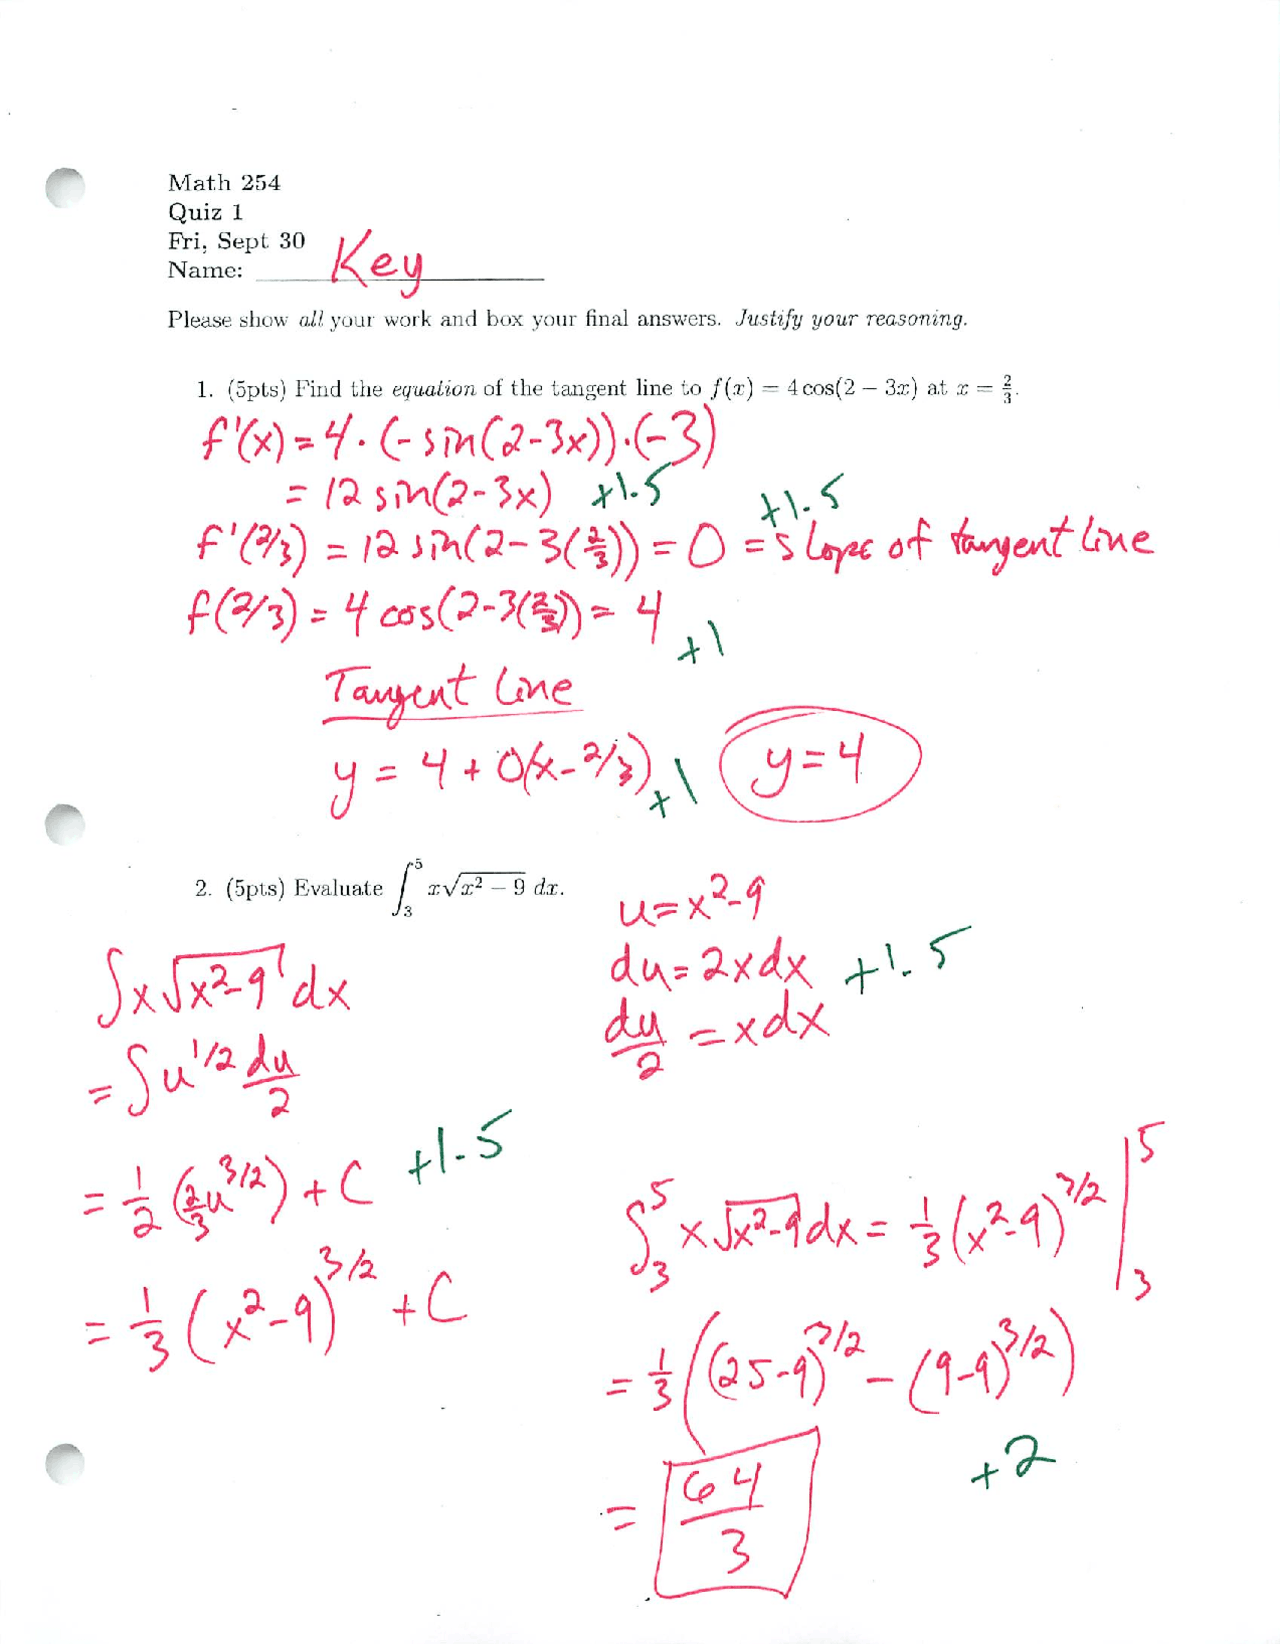 Math 254
Quiz 1
Fri, Sept 30
Name: Key
Please show all your work and box your final answers. Justify your reasoning.
1. (5pts) Find the equation of the tangent line to f(x) = 4 cos(2 − 3x) at x = 2/3.
f'(x) = 4 · (- sin(2-3x)) · (-3)
= 12 sin(2-3x) +1.5
+1.5
f'(2/3) = 12 sin(2-3(2/3)) = 0 = slope of tangent line
f(2/3) = 4 cos(2-3(2/3)) = 4
+1
Tangent Line
y = 4 + 0(x - 2/3) +1 y = 4
2. (5pts) Evaluate ∫_3^5 x√(x² − 9) dx.
u = x²-9
du = 2xdx +1.5
du/2 = xdx
∫x√(x²-9) dx
= ∫u^(1/2) du/2
= 1/2 (2/3 u^(3/2)) + C +1.5
= 1/3 (x²-9)^(3/2) + C
∫_3^5 x√(x²-9) dx = 1/3 (x²-9)^(3/2) |_3^5
= 1/3 ((25-9)^(3/2) - (9-9)^(3/2))
+2
= 64/3